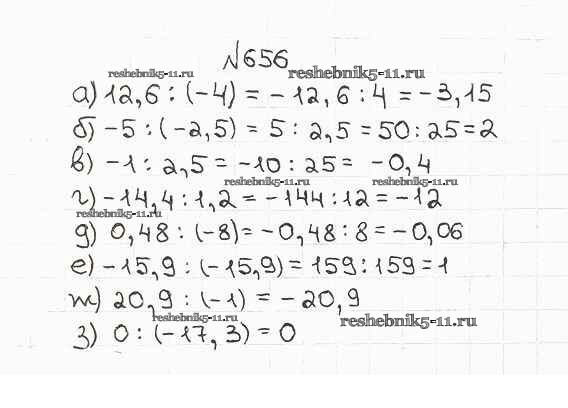 №656
reshebnik5-11.ru reshebnik5-11.ru
а) 12,6 : (-4) = -12,6 : 4 = -3,15
б) -5 : (-2,5) = 5 : 2,5 = 50 : 25 = 2
в) -1 : 2,5 = -10 : 25 = -0,4
reshebnik5-11.ru reshebnik5-11.ru
г) -14,4 : 1,2 = -144 : 12 = -12
reshebnik5-11.ru
д) 0,48 : (-8) = -0,48 : 8 = -0,06
е) -15,9 : (-15,9) = 159 : 159 = 1
ж) 20,9 : (-1) = -20,9
reshebnik5-11.ru reshebnik5-11.ru
з) 0 : (-17,3) = 0